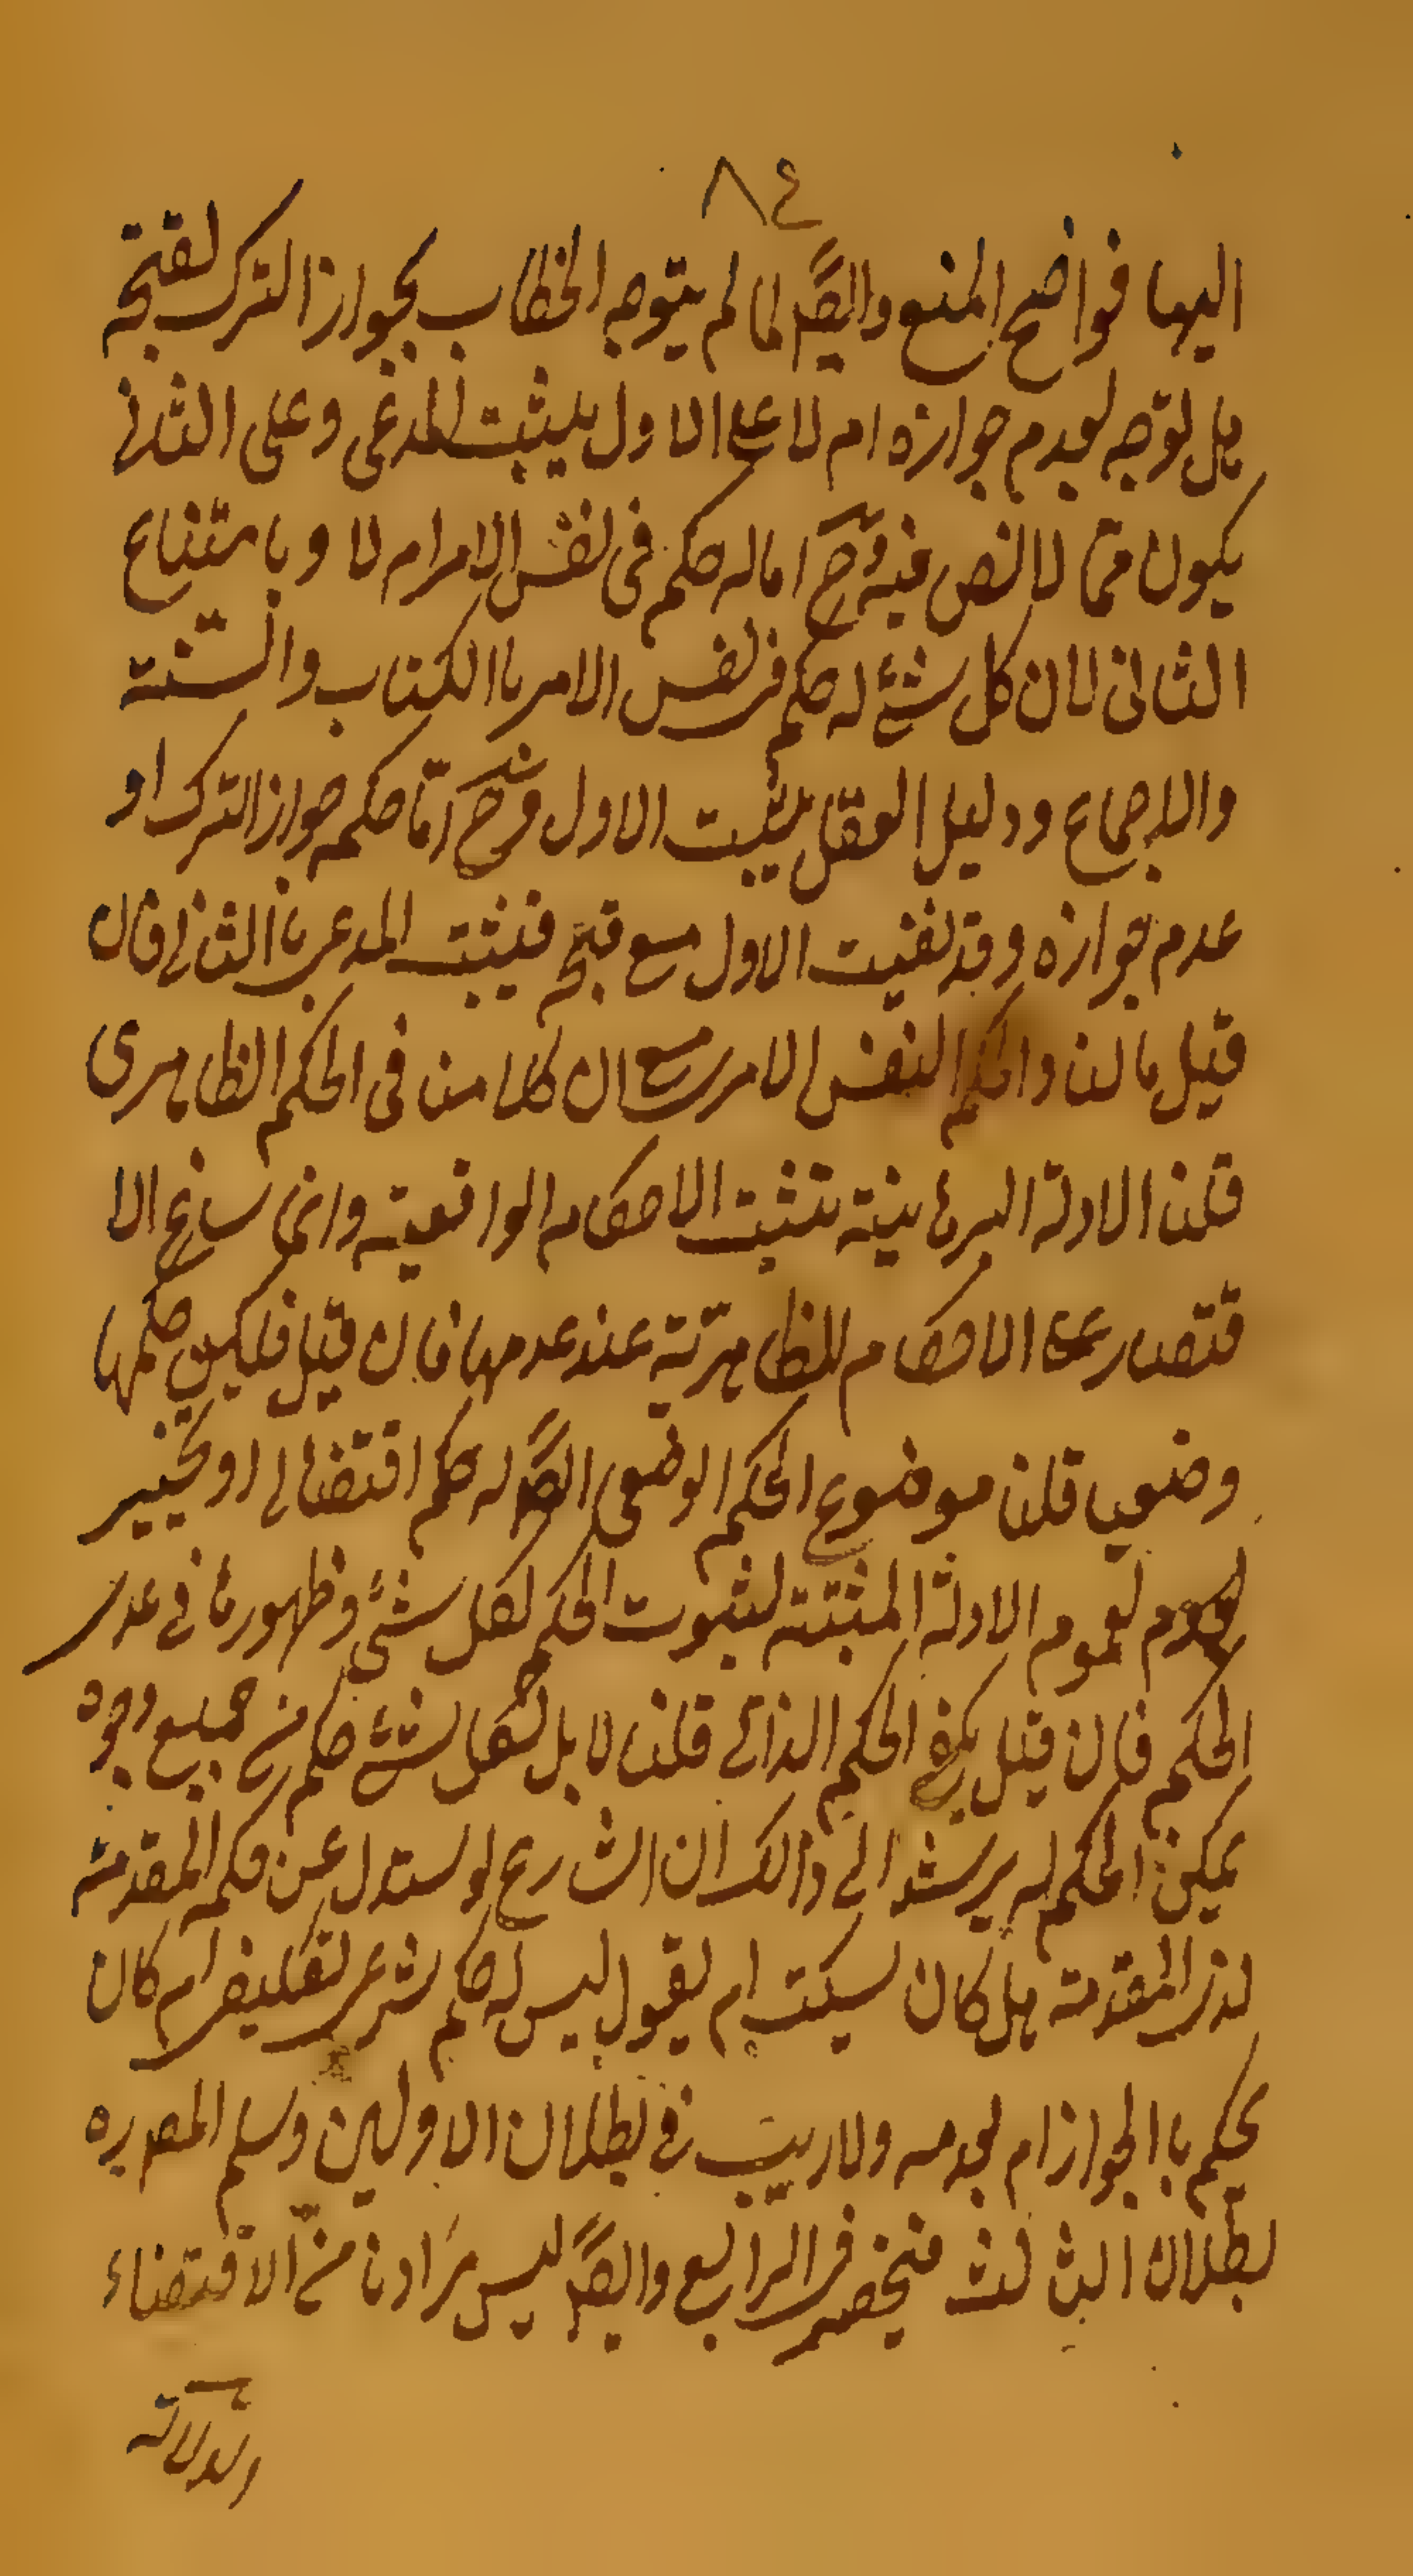 ٨٤
اليها فواضح المنع وايضا لما لم يتوجه الخطاب بجواز الترك لقبحه
هل توجه لعدم جوازه ام لا على الاول يثبت المدعى وعلى الثانى
يكون مما لا نص فيه وح اما له حكم فى نفس الامر ام لا وبامتناع
الثانى لان كل شئ له حكم فى نفس الامر باالكتاب والسنة
والاجماع ودليل العقل يثبت الاول وح اما حكم جواز الترك او
عدم جوازه وقد نفيت الاول مع قبحه فيثبت المدعى باالثانى فان
قيل مالنا والحكم النفس الامرى مع ان كلامنا فى الحكم الظاهرى
قلنا الادلة البرهانية تثبت الاحكام الواقعية وانما ساغ الا
قتصار على الاحكام الظاهرية عند عدمها فان قيل فليكن حكمها
وضعيا قلنا موضوع الحكم الوضعى ايضا له حكم اقتضائى او تخييرى
لعموم الادلة المثبتة لثبوت الحكم لكل شئ وظهورها فى عدم
الحكم فان قيل يكفى الحكم الذاتى قلنا لا بل لكل شئ حكم من جميع وجوه
يمكن الحكم له يرشد الى ذالك ان الشارع لو سئل عن حكم المقدمة
لذى المقدمة هل كان يسكت ام يقول ليس له حكم شرعى تكليفى ام كان
يحكم باالجواز ام بعدمه ولا ريب فى بطلان الاولين وسلم المصـ ره
بطلان الثالث فينحصر فى الرابع وايضا ليس مرادنا من الاقتضاء
الدلالة